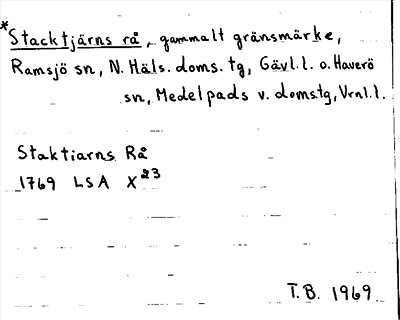 *Stacktjärns rå, gammalt gränsmärke,
Ramsjö sn, N. Häls. doms. tg, Gävl. l. o. Haverö
sn, Medelpads v. domstg, Vrnl. l.
Staktiarns Rå
1769 LSA X23
T.B. 1969